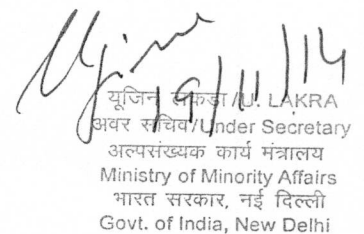 19/11/14
यूजिन लकड़ा/U. LAKRA
अवर सचिव/Under Secretary
अल्पसंख्यक कार्य मंत्रालय
Ministry of Minority Affairs
भारत सरकार, नई दिल्ली
Govt. of India, New Delhi